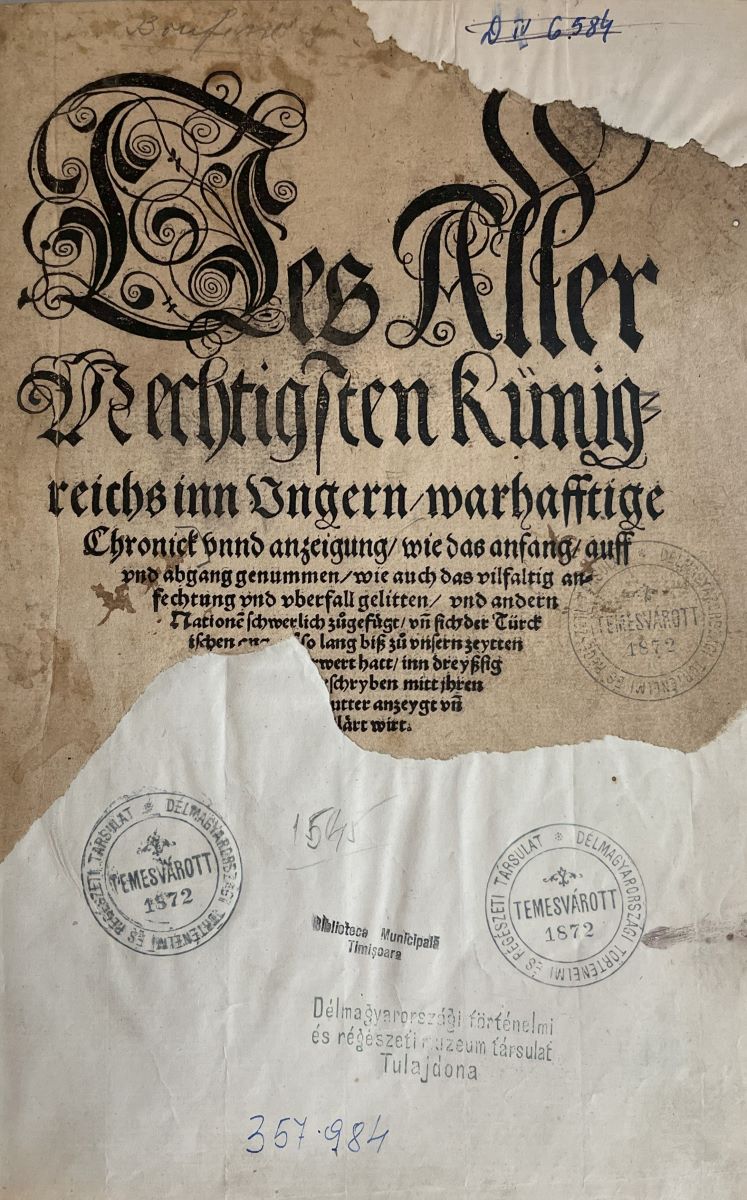 Bonfini
D IV 6.584
Des Aller
Mechtigsten Künig⸗
reichs inn Vngern/ warhafftige
Chronick vnnd anzeigung/ wie das anfang/ auff
vnd abgang genummen/ wie auch das vilfaltig an⸗
fechtung vnd vberfall gelitten/ vnd andern
Nationẽ schwerlich zůgefügt/ vñ sich der Türck
ischen so lang biß zů vnsern zeytten
erwert hatt/ inn dreyßsig
beschryben mitt jhren
anzeygt vñ
klärt wirt.
DÉLMAGYARORSZÁGI TÖRTÉNELMI ÉS RÉGÉSZETI TÁRSULAT
TEMESVÁROTT
1872
DÉLMAGYARORSZÁGI TÖRTÉNELMI ÉS RÉGÉSZETI TÁRSULAT
TEMESVÁROTT
1872
1545
DÉLMAGYARORSZÁGI TÖRTÉNELMI ÉS RÉGÉSZETI TÁRSULAT
TEMESVÁROTT
1872
Biblioteca Municipală
Timișoara
Délmagyarországi történelmi
és régészeti muzeum társulat
Tulajdona
357.984